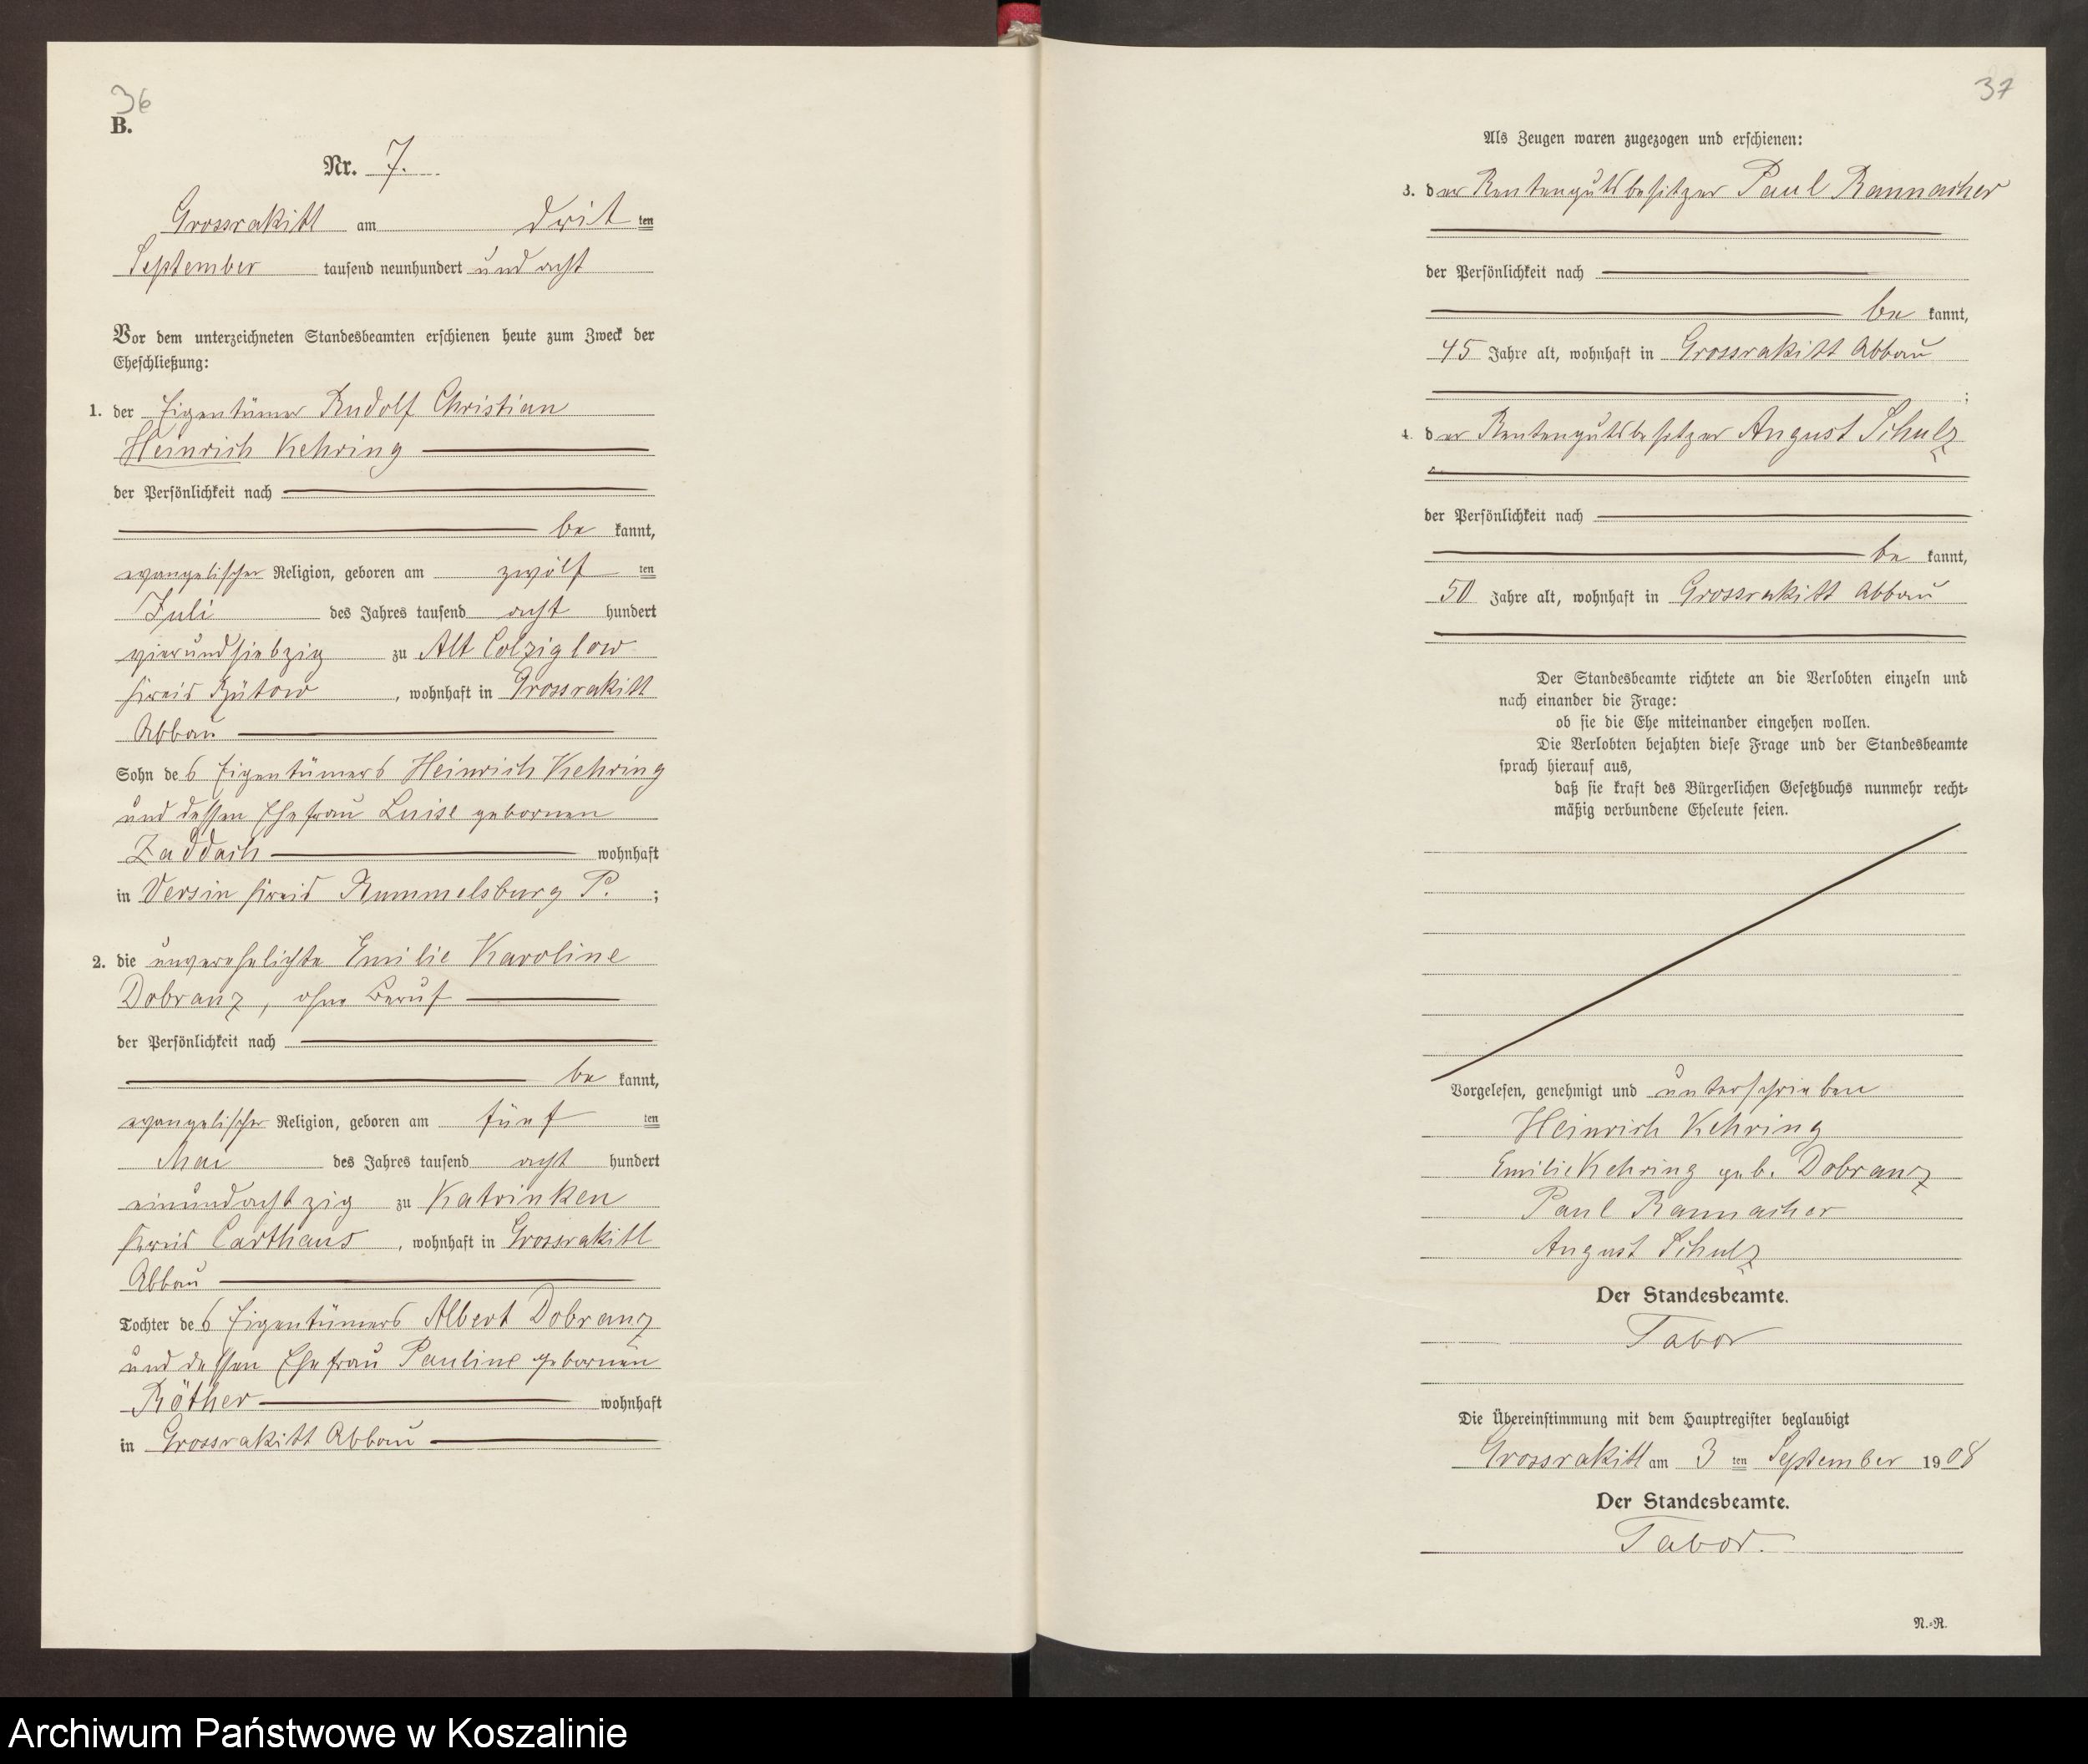 36
B.
Nr. 7.
Grossrakitt am dritten
September tausend neunhundert und acht
Vor dem unterzeichneten Standesbeamten erschienen heute zum Zweck der
Eheschließung:
1. der Eigentümer Rudolf Christian
Heinrich Kehring
der Persönlichkeit nach
be kannt,
evangelischer Religion, geboren am zwölf ten
Juli des Jahres tausend acht hundert
vierundsiebzig zu Alt Colziglow
Kreis Bütow, wohnhaft in Grossrakitt
Abbau
Sohn des Eigentümers Heinrich Kehring
und dessen Ehefrau Luise gebornen
Zaddach wohnhaft
in Versin Kreis Rummelsburg P. ;
2. die unverehelichte Emilie Karoline
Dobranz, ohne Beruf
der Persönlichkeit nach
be kannt,
evangelischer Religion, geboren am fünf ten
Mai des Jahres tausend acht hundert
einundachtzig zu Katrinken
Kreis Carthaus, wohnhaft in Grossrakitt
Abbau
Tochter des Eigentümers Albert Dobranz
und dessen Ehefrau Pauline gebornen
Röther wohnhaft
in Grossrakitt Abbau
37
Als Zeugen waren zugezogen und erschienen:
3. der Rentengutsbesitzer Paul Rannacher
der Persönlichkeit nach
be kannt,
45 Jahre alt, wohnhaft in Grossrakitt Abbau
;
4. der Rentengutsbesitzer August Schulz
der Persönlichkeit nach
be kannt,
50 Jahre alt, wohnhaft in Grossrakitt Abbau
Der Standesbeamte richtete an die Verlobten einzeln und
nach einander die Frage:
ob sie die Ehe miteinander eingehen wollen.
Die Verlobten bejahten diese Frage und der Standesbeamte
sprach hierauf aus,
daß sie kraft des Bürgerlichen Gesetzbuchs nunmehr recht-
mäßig verbundene Eheleute seien.
Vorgelesen, genehmigt und unterschrieben
Heinrich Kehring
Emilie Kehring geb. Dobranz
Paul Rannacher
August Schulz
Der Standesbeamte.
Tabor
Die Übereinstimmung mit dem Hauptregister beglaubigt
Grossrakitt am 3 ten September 1908
Der Standesbeamte.
Tabor.
N.-R.
Archiwum Państwowe w Koszalinie